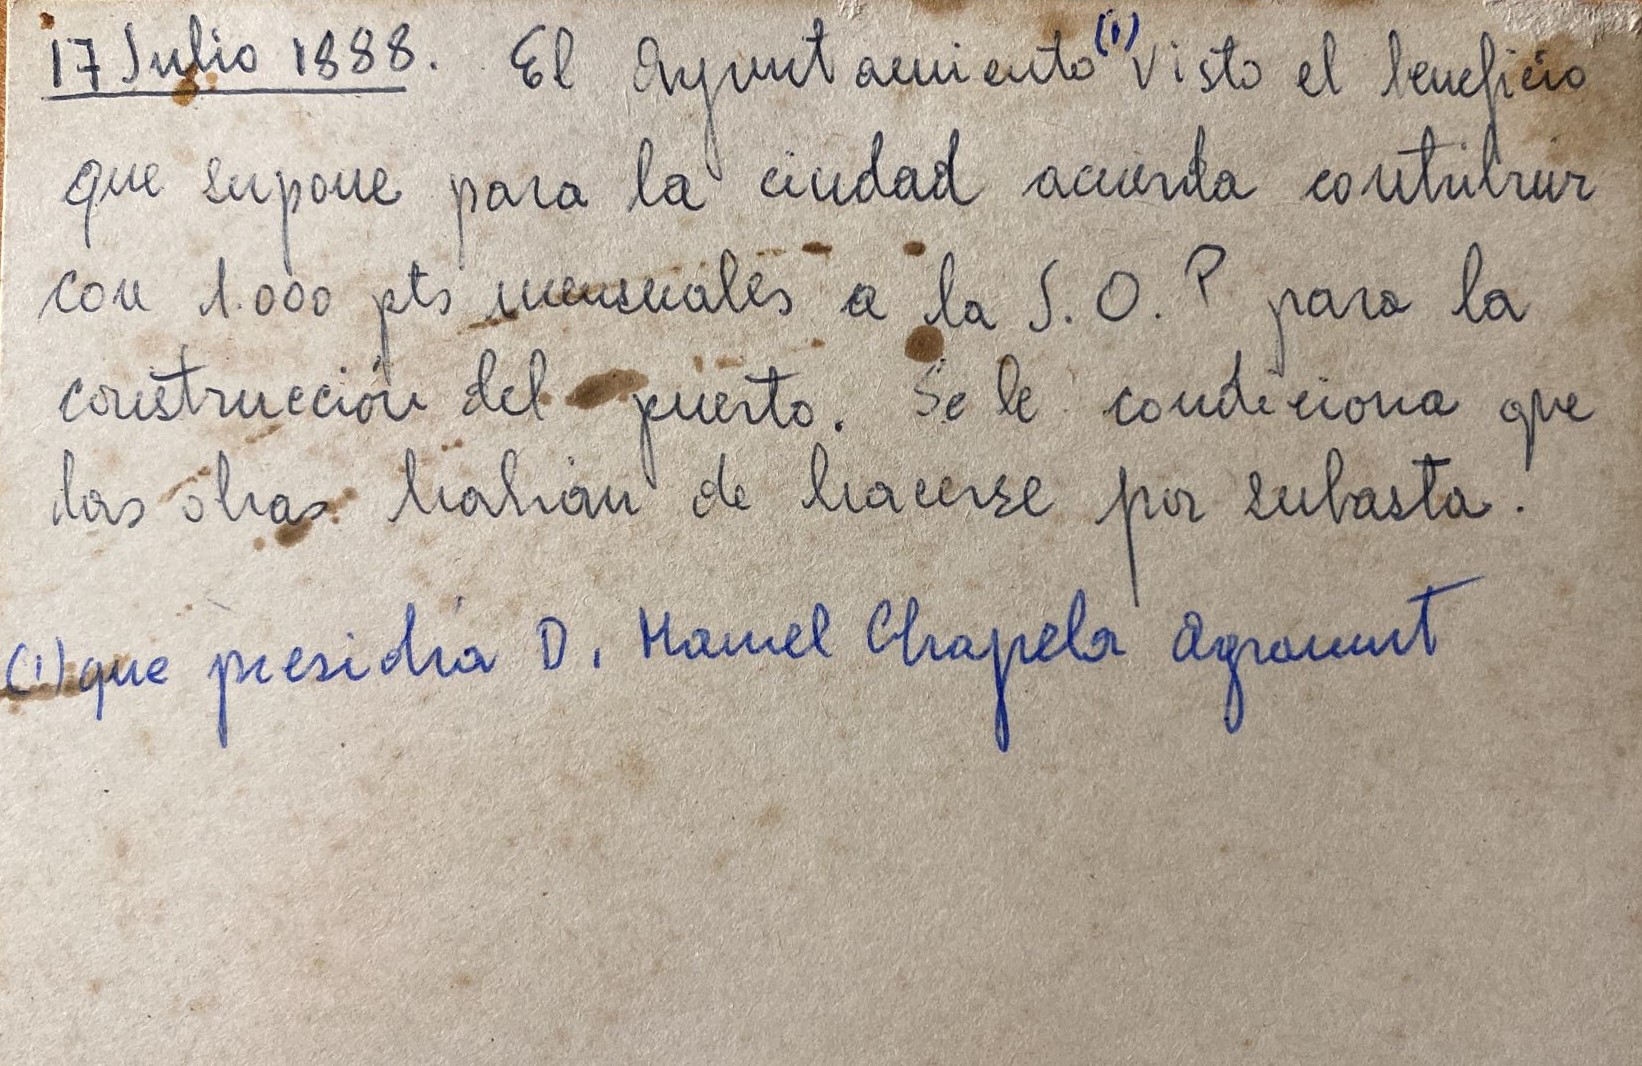 17 Julio 1888. El Ayuntamiento (1) visto el beneficio
que supone para la ciudad acuerda contribuir
con 1.000 pts mensuales a la J. O. P para la
construcción del puerto. Se le condiciona que
las obras habían de hacerse por subasta.
(1) que presidía D. Manuel Chapela Agramunt